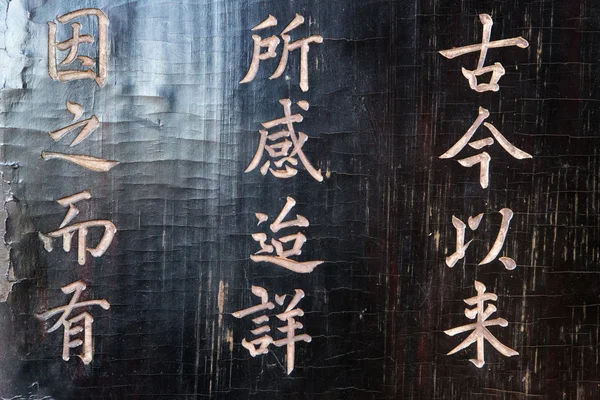 古今以來
所感迨詳
因之而有